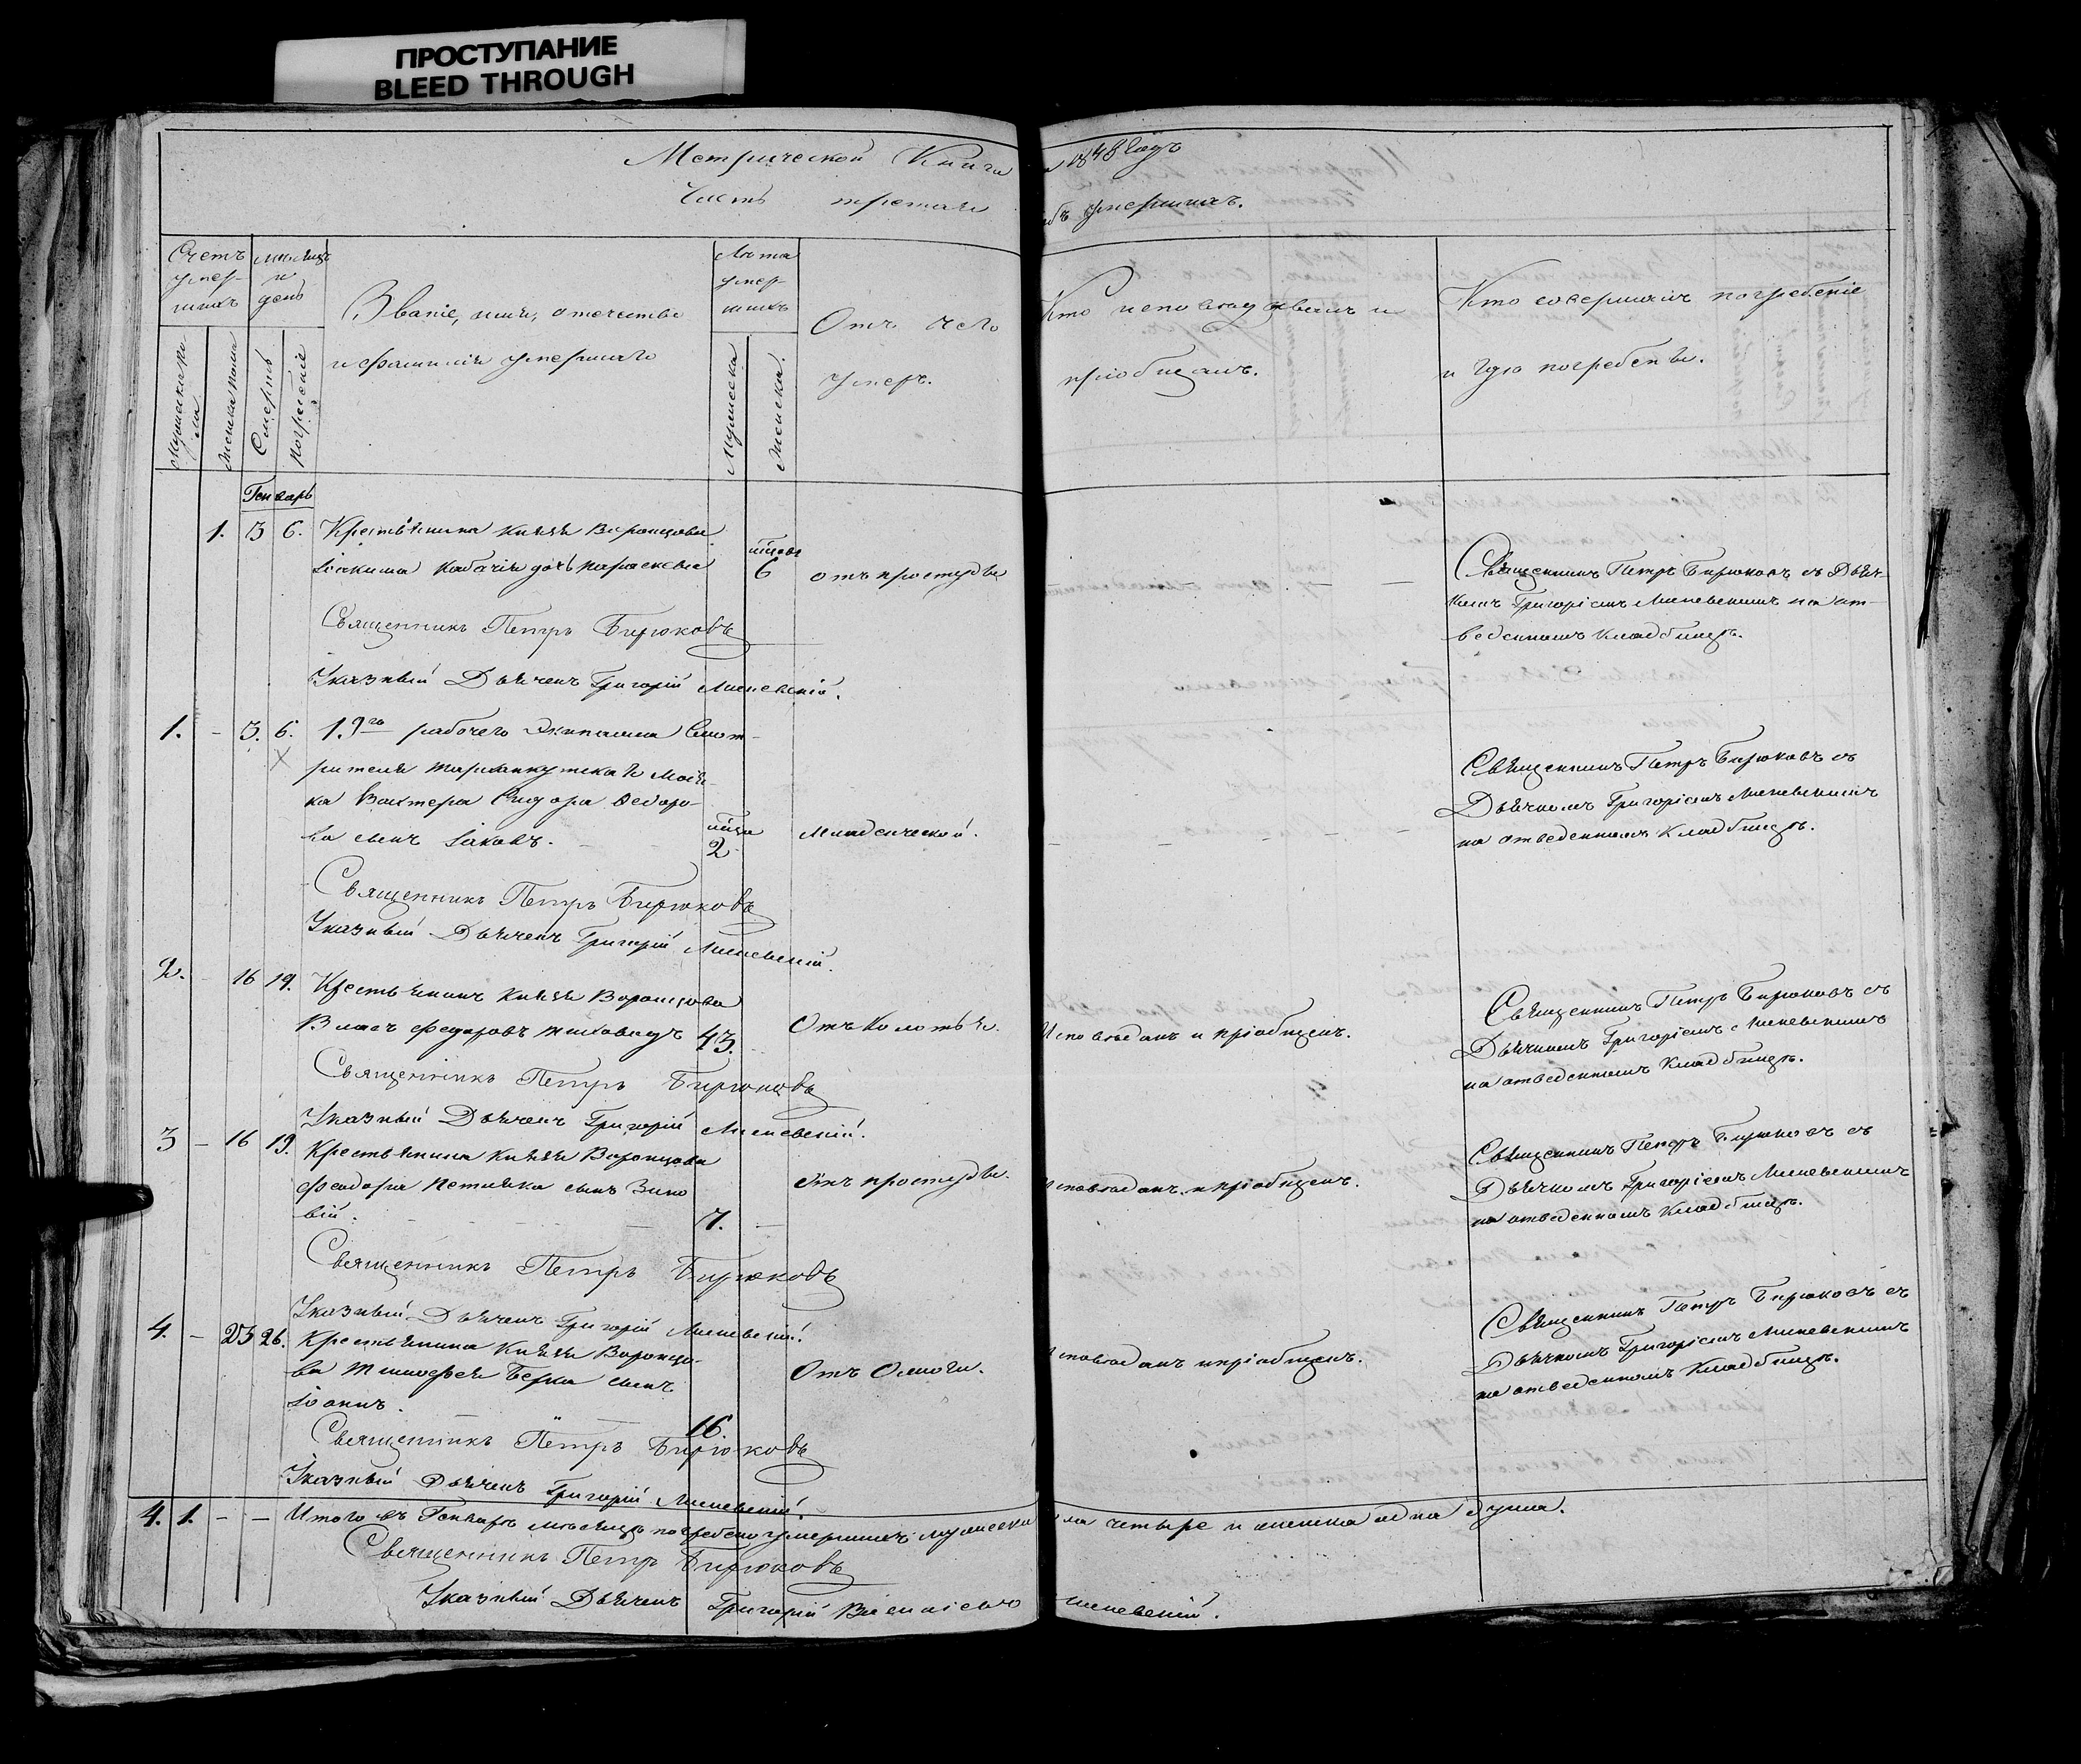 ПРОСТУПАНИЕ
BLEED THROUGH
Метрической Книги на 1848 годъ
Часть третья объ умершихъ.
Счетъ умершихъ
мѣсяцъ и день
Званіе, имя, отечество
и фамилія умершаго
Лѣта умершихъ
Отъ чего
умеръ.
Кто исповѣдывалъ и
пріобщалъ.
Кто совершалъ погребеніе
и гдѣ погребены.
Мужеска пола
Женска пола
Смерть
Погребеніе
Мужеска
Женска.
Генварь
1. 3 6. Крестьянина Князя Воронцова
Іоакима дочь Параскева 6 отъ простуды
Священникъ Петръ Бирюковъ съ Дьяч-
комъ Григоріемъ на от-
веденномъ Кладбищѣ.
Священникъ Петръ Бирюковъ
Указный Дьячекъ Григорій
1. - 3. 6. 19го рабочего Экипажа Смот-
рителя Тарханкутскаго Мая-
ка Вахтера Сидора Ѳедоро-
ва сынъ Іаковъ. 2 Младенческой.
Священникъ Петръ Бирюковъ съ
Дьячкомъ Григоріемъ
на отведенномъ Кладбищѣ.
Священникъ Петръ Бирюковъ
Указный Дьячекъ Григорій
2. - 16 19. Крестьянинъ Князя Воронцова
Власъ Федоровъ 43. Отъ Колотья. Исповѣданъ и пріобщенъ.
Священникъ Петръ Бирюковъ съ
Дьячкомъ Григоріемъ
на отведенномъ Кладбищѣ.
Священникъ Петръ Бирюковъ
Указный Дьячекъ Григорій
3 - 16 19. Крестьянина Князя Воронцова
Феодора сынъ Зино
вій. 7. Отъ простуды. Исповѣданъ и пріобщенъ.
Священникъ Петръ Бирюковъ съ
Дьячкомъ Григоріемъ
на отведенномъ Кладбищѣ.
Священникъ Петръ Бирюковъ
Указный Дьячекъ Григорій
4. - 23 26. Крестьянина Князя Воронцо-
ва Тимофея сынъ
Іоаннъ. 16. Исповѣданъ и пріобщенъ.
Священникъ Петръ Бирюковъ съ
Дьячкомъ Григоріемъ
на отведенномъ Кладбищѣ.
Священникъ Петръ Бирюковъ
Указный Дьячекъ Григорій
4. 1. - - Итого въ Генварѣ мѣсяцѣ погребено умершихъ мужеска пола четыре и женска одна душа.
Священникъ Петръ Бирюковъ
Указный Дьячекъ Григорій